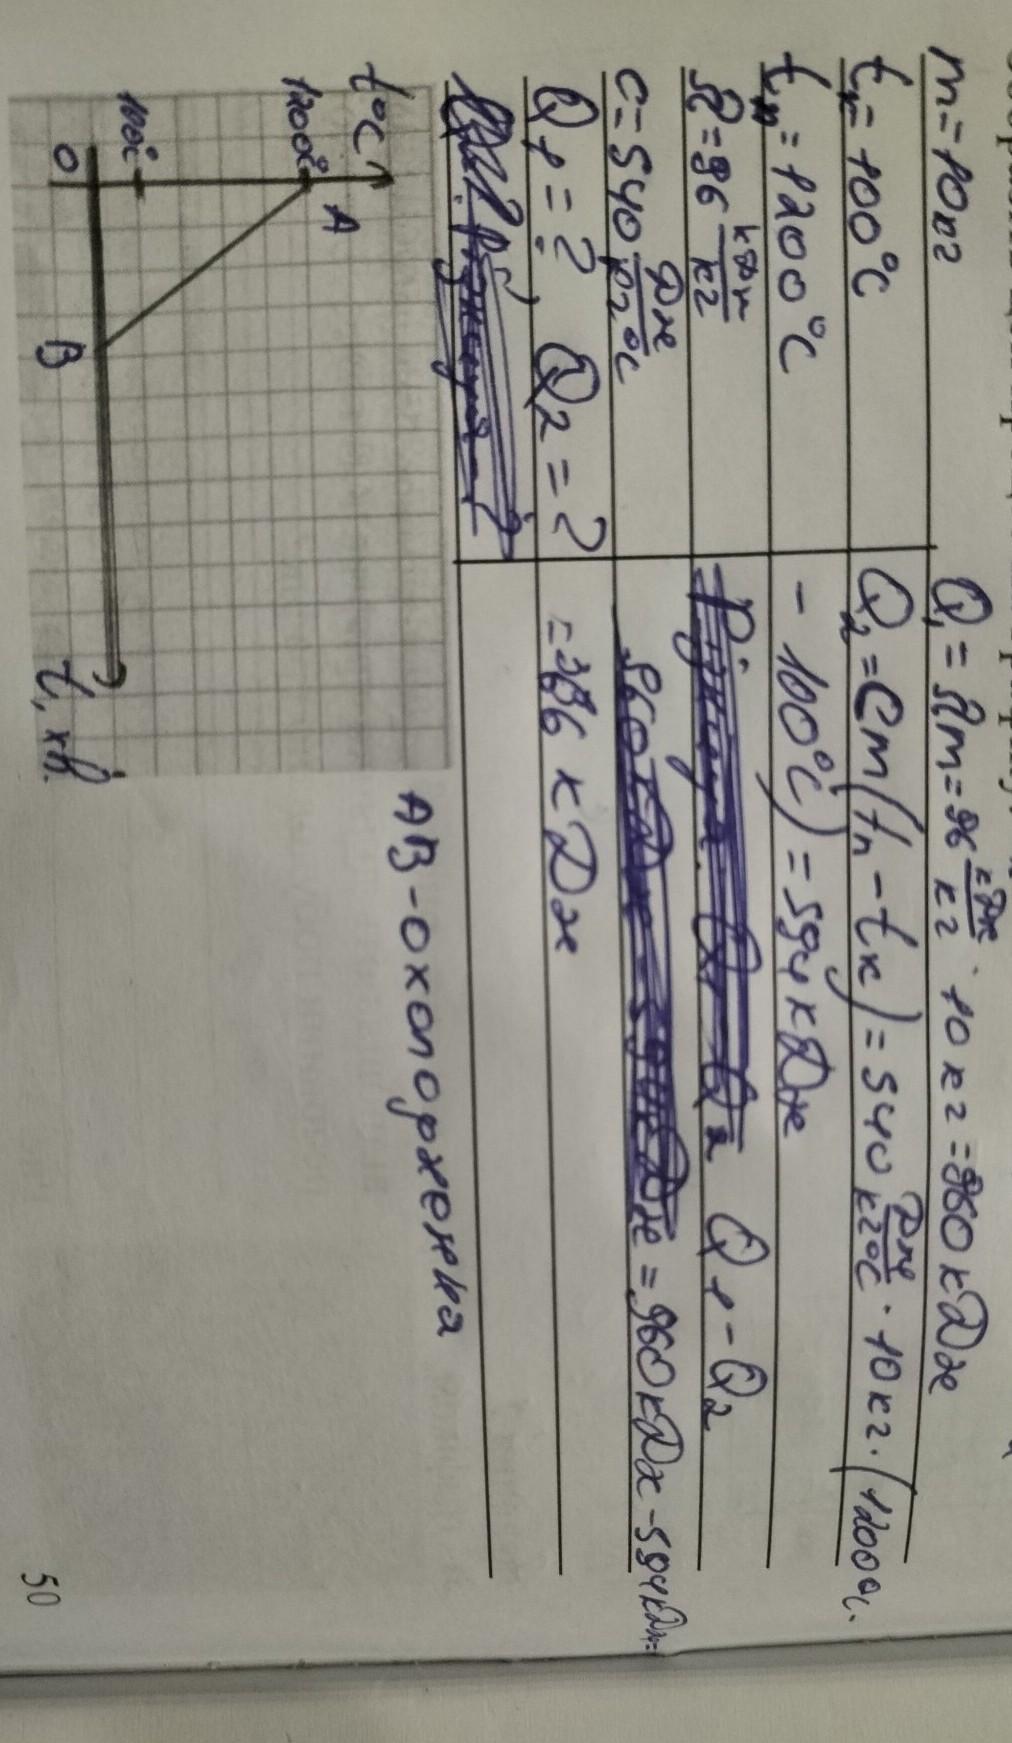 m=10кг
tк=100°C
tп=1200°C
λ=96 кДж/кг
c=540 Дж/кг°C
Q1=? Q2=?
Q1=λm=96 кДж/кг · 10кг=960кДж
Q2=cm(tп-tк)=540 Дж/кг°C · 10кг·(1200°C-
- 100°C)=594кДж
Q1-Q2
=960кДж-594кДж=
= кДж
t°C
1200°
A
100°
0
B
t, хв.
AB-охолодження
50